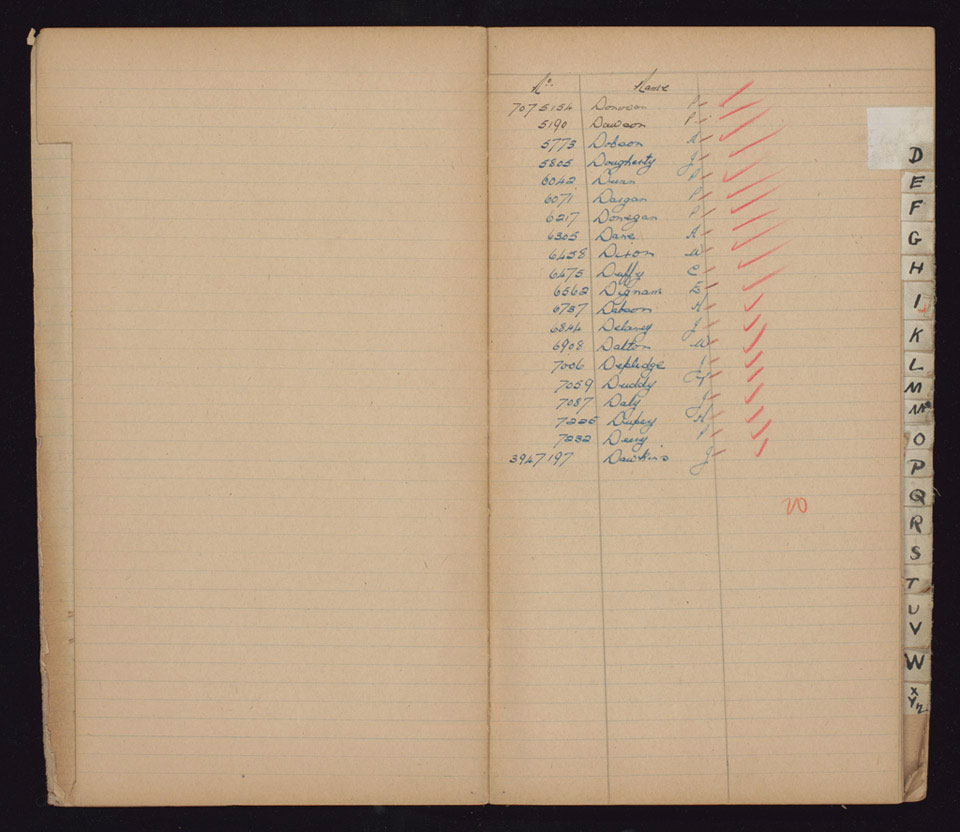 No. Name
7075154 Donovan P
5190 Dawson P
5773 Dobson A
5805 Dougherty J
6042 Dunn P
6071 Dargan P
6217 Donegan P
6305 Dane A
6458 Dixon W
6475 Duffy C
6562 Dignam E
6737 Dobson H
6844 Delaney J
6908 Dalton W
7006 Depledge
7059 Duddy
7087 Daly J
7225 H
7232 P
3947197 Dawkins J
20
D
E
F
G
H
I
K
L
M
Mc
O
P
Q
R
S
T
U
V
W
X
Y Z